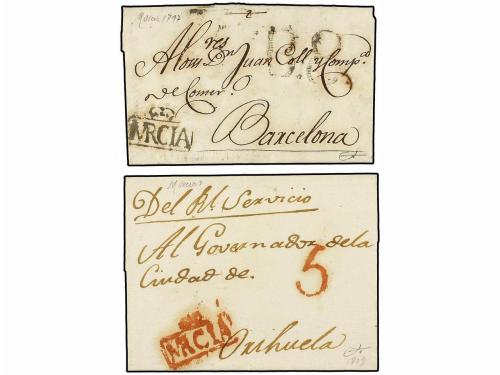 Murcia 1797
2
A los S.res Dn Juan Coll y Comp.a
de Comer.o
8
MRCIA
Barcelona
Murcia
Del Rl. Servicio
Al Governador de la
Ciudad de.
5
MRCIA
Orihuela
1809